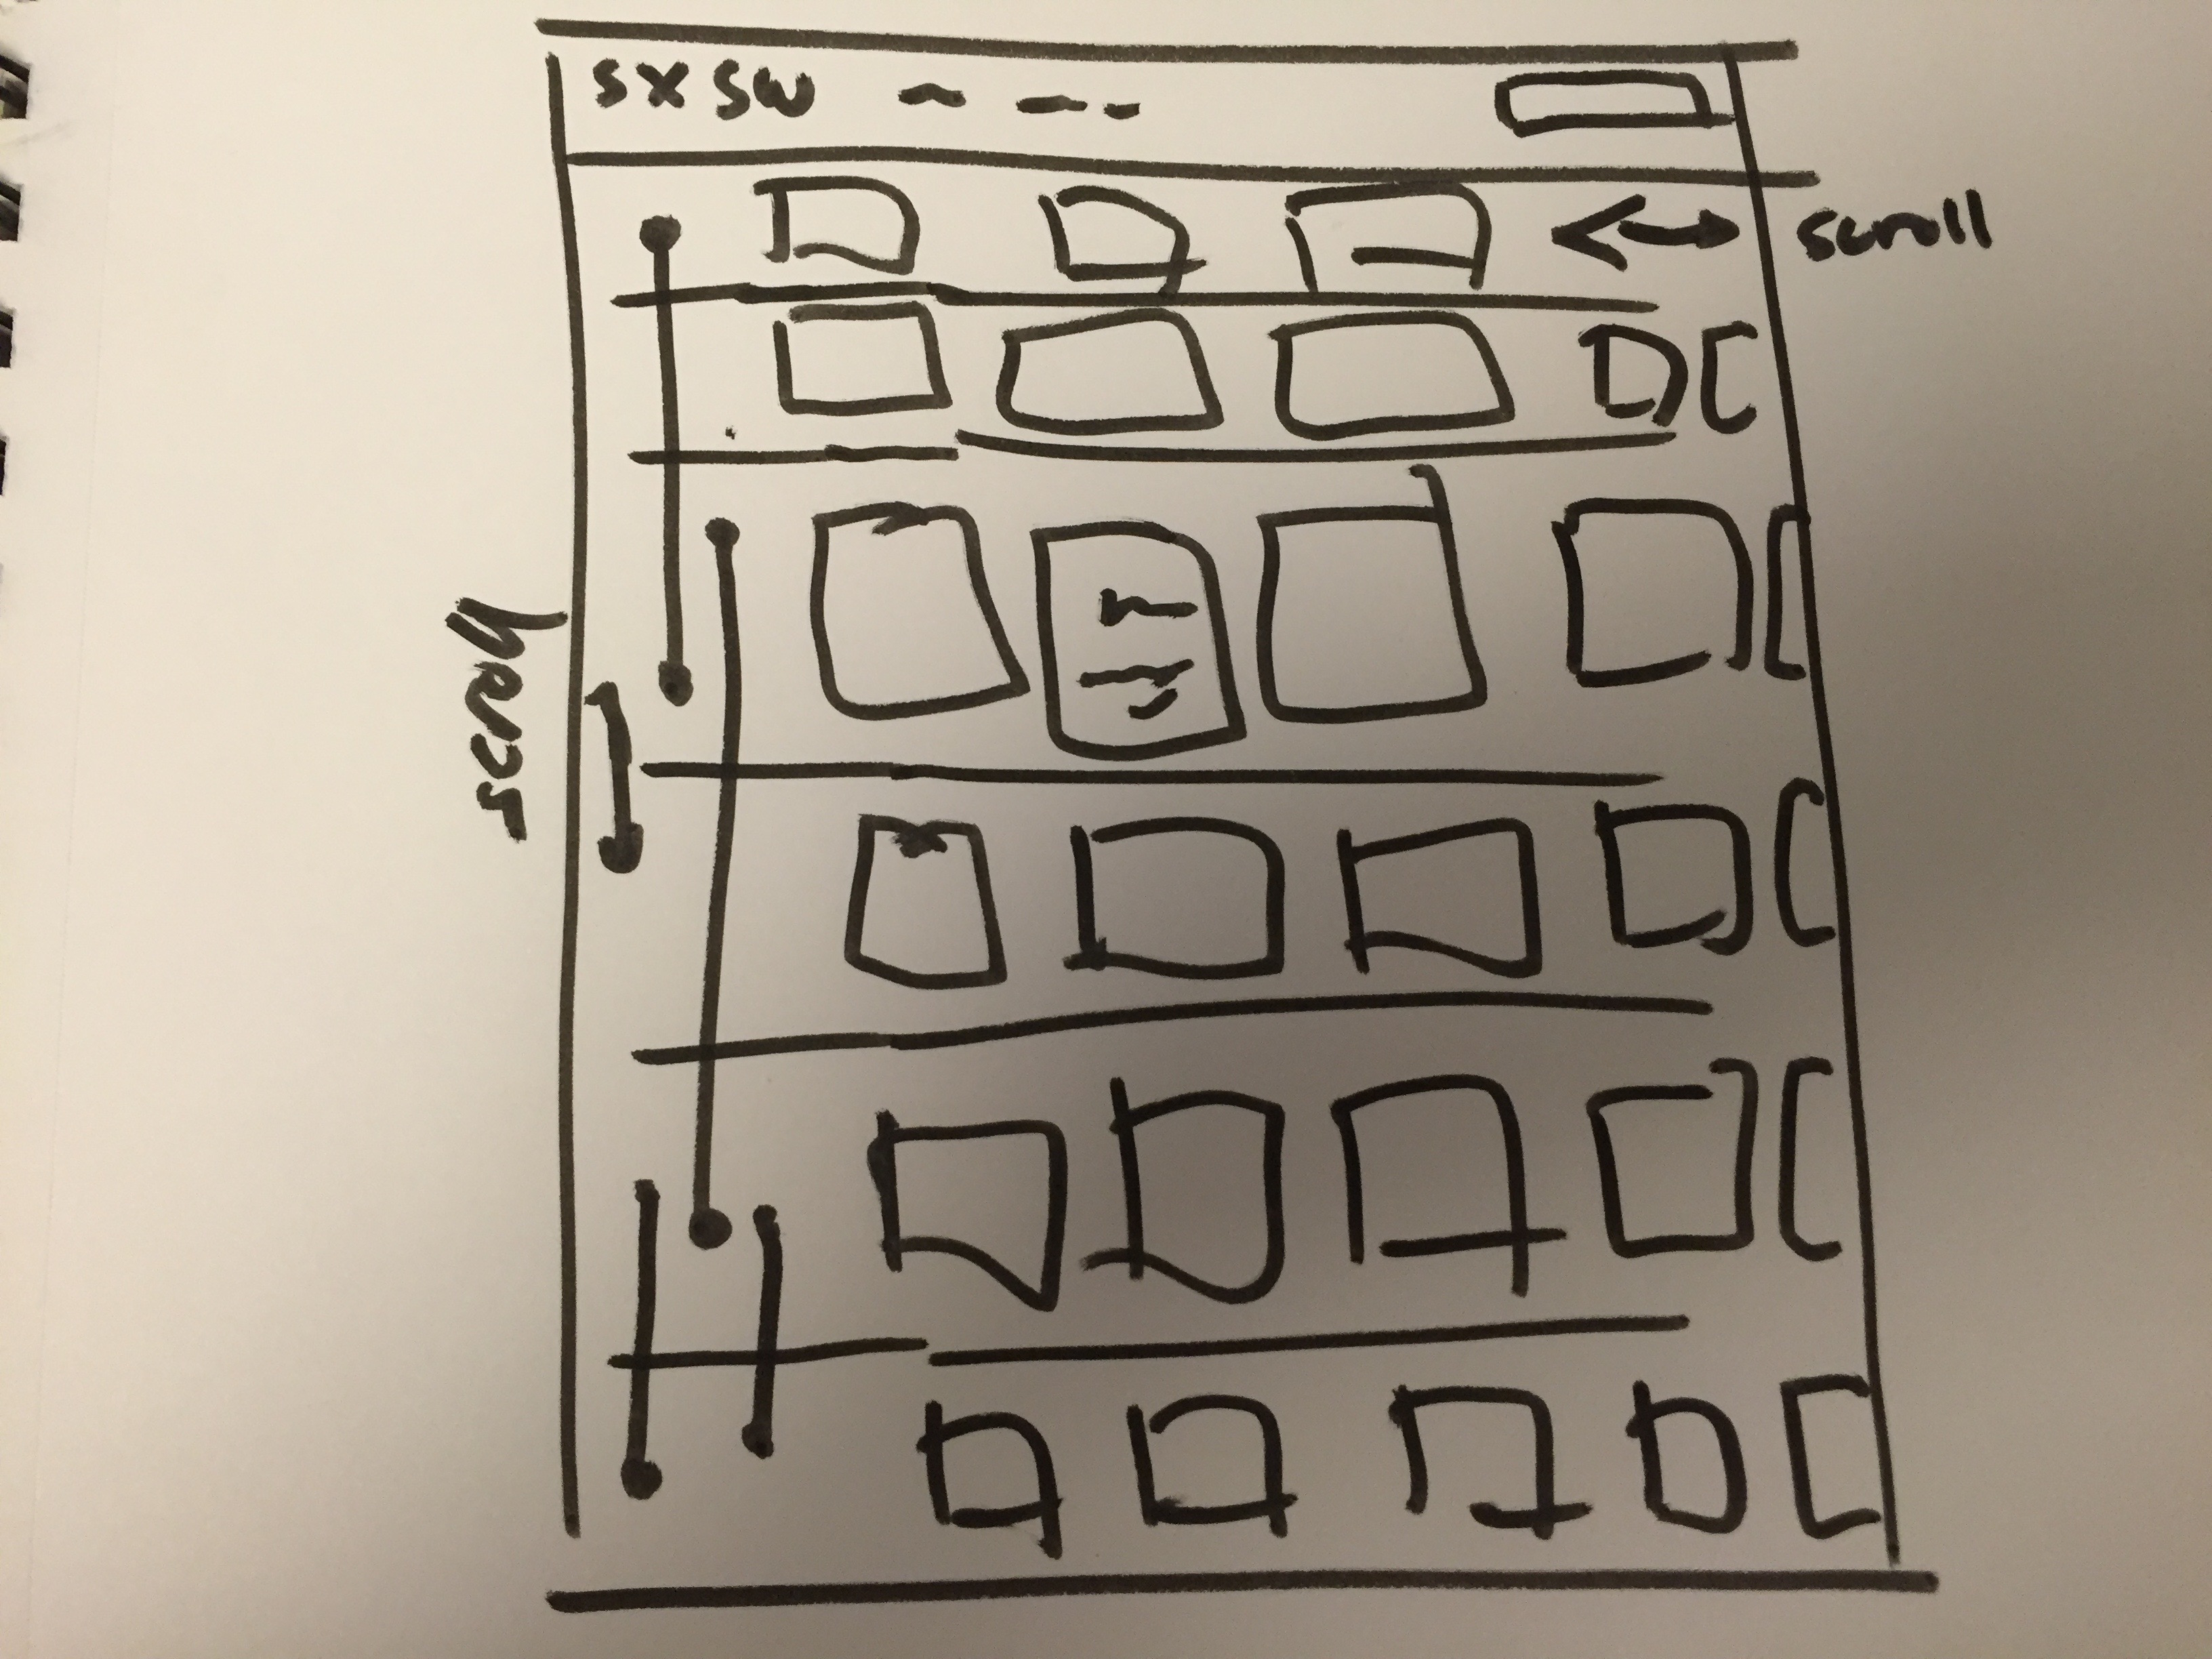 sxsw
scroll
scroll